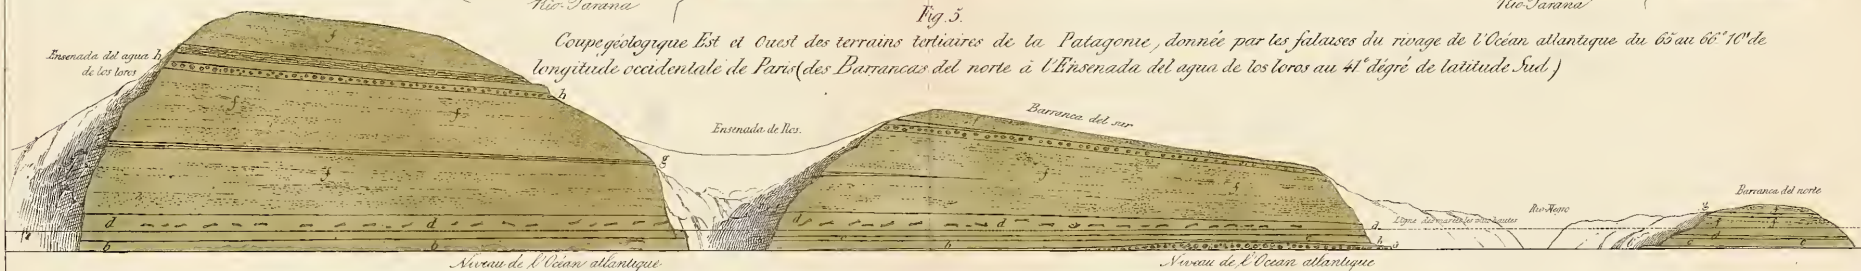 Rio-Parana
Rio-Parana
Fig. 5.
Coupe géologique Est et Ouest des terrains tertiaires de la Patagonie, donnée par les falaises du rivage de l'Océan atlantique du 65 au 66° 10' de
longitude occidentale de Paris (des Barrancas del norte à l'Ensenada del agua de los loros au 41e dégré de latitude Sud)
Ensenada del agua
de los loros
h
f
f
f
h
Ensenada de Ros.
Barranca del sur
g
f
f
f
Barranca del norte
Rio-Negro
Ligne des marées les plus hautes
g
f
d
d
d
d
d
d
b
b
b
b
a
c
e
Niveau de l'Océan atlantique
Niveau de l'Océan atlantique